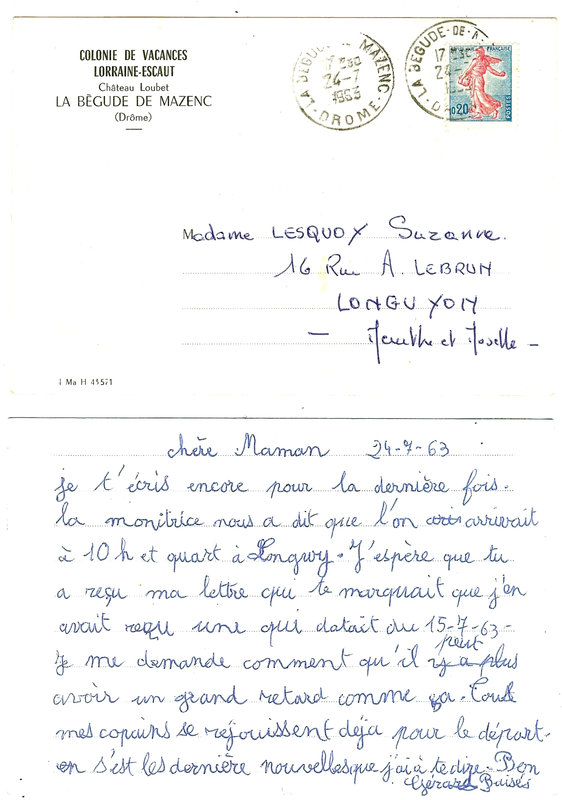 COLONIE DE VACANCES
LORRAINE-ESCAUT
Château Loubet
LA BÊGUDE DE MAZENC
(Drôme)
LA BÉGUDE-DE-MAZENC
17 H30
24-7
1963
DROME
LA BÉGUDE-DE-
17 H30
24-
DROME
FRANÇAISE
0,20
POSTES
Madame LESQUOY Suzanne.
16 Rue A. LEBRUN
LONGUYON
— Meurthe et Moselle —
1 Ma H 45571
chère Maman 24-7-63
je t'écris encore pour la dernière fois.
la monitrice nous a dit que l'on arrivait
à 10 h et quart à Longwy. J'espère que tu
a reçu ma lettre qui te marquait que j'en
avait reçu une qui datait du 15-7-63-
peut
Je me demande comment qu'il y a plus
avoir un grand retard comme ça. Toute
mes copains se rejouissent déja pour le départ.
en s'est les dernière nouvelles que j'ai à te dire. Bon
Gérard Baisés